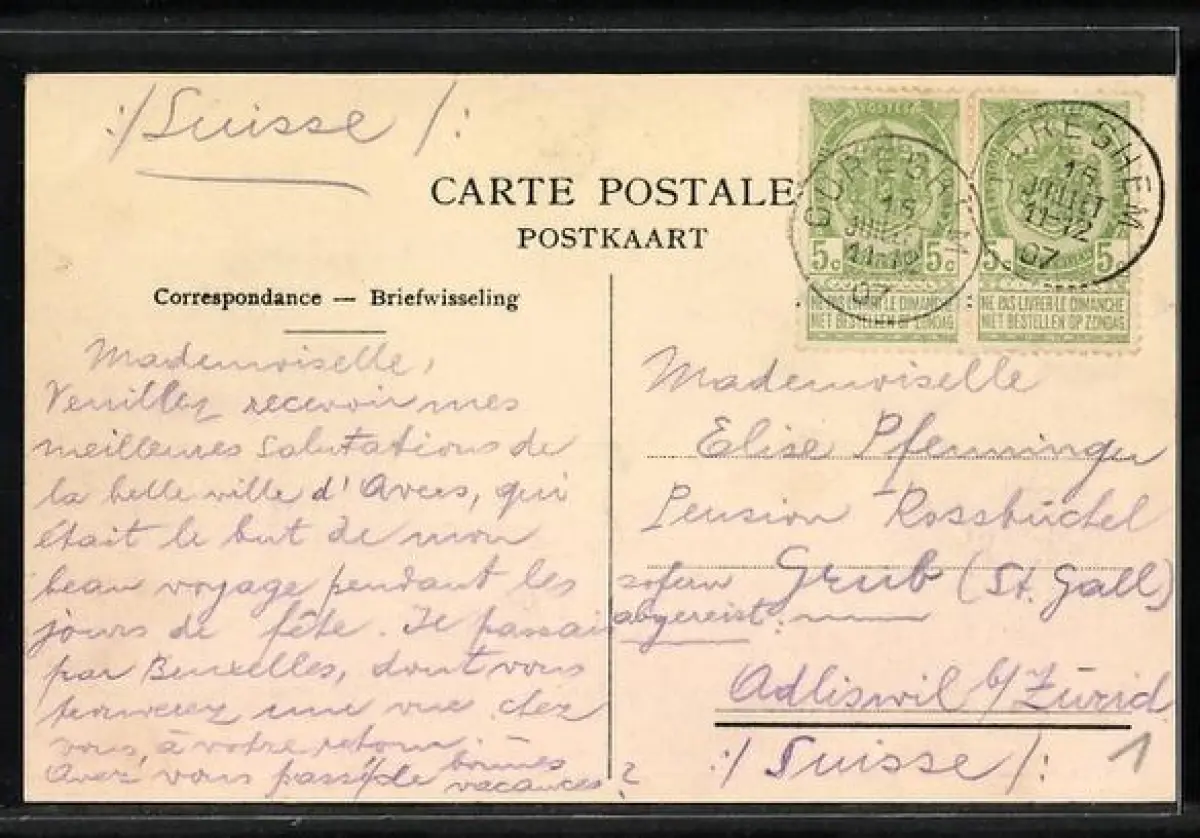 :/Suisse/:
CARTE POSTALE
POSTKAART
Correspondance — Briefwisseling
POSTES
5c 5c
NE PAS LIVRER LE DIMANCHE
NIET BESTELLEN OP ZONDAG
5c 5c
NE PAS LIVRER LE DIMANCHE
NIET BESTELLEN OP ZONDAG
CUREGHEM
15
JUILLET
11-12
07
CUREGHEM
15
JUILLET
11-12
07
Mademoiselle,
Veuillez recevoir mes
meilleures salutations de
la belle ville d'Anvers, qui
était le but de mon
beau voyage pendant les
jours de fête. Je passai
par Bruxelles, dont vous
trouverez une vue chez
vous, à votre retour.
Avez vous passé de bonnes
vacances?
Mademoiselle
Elise Pfenninger
Pension Rossbüchel
Grub (St. Gall)
sofern
abgereist:
Adliswil b/Zürich
:/Suisse/:
1